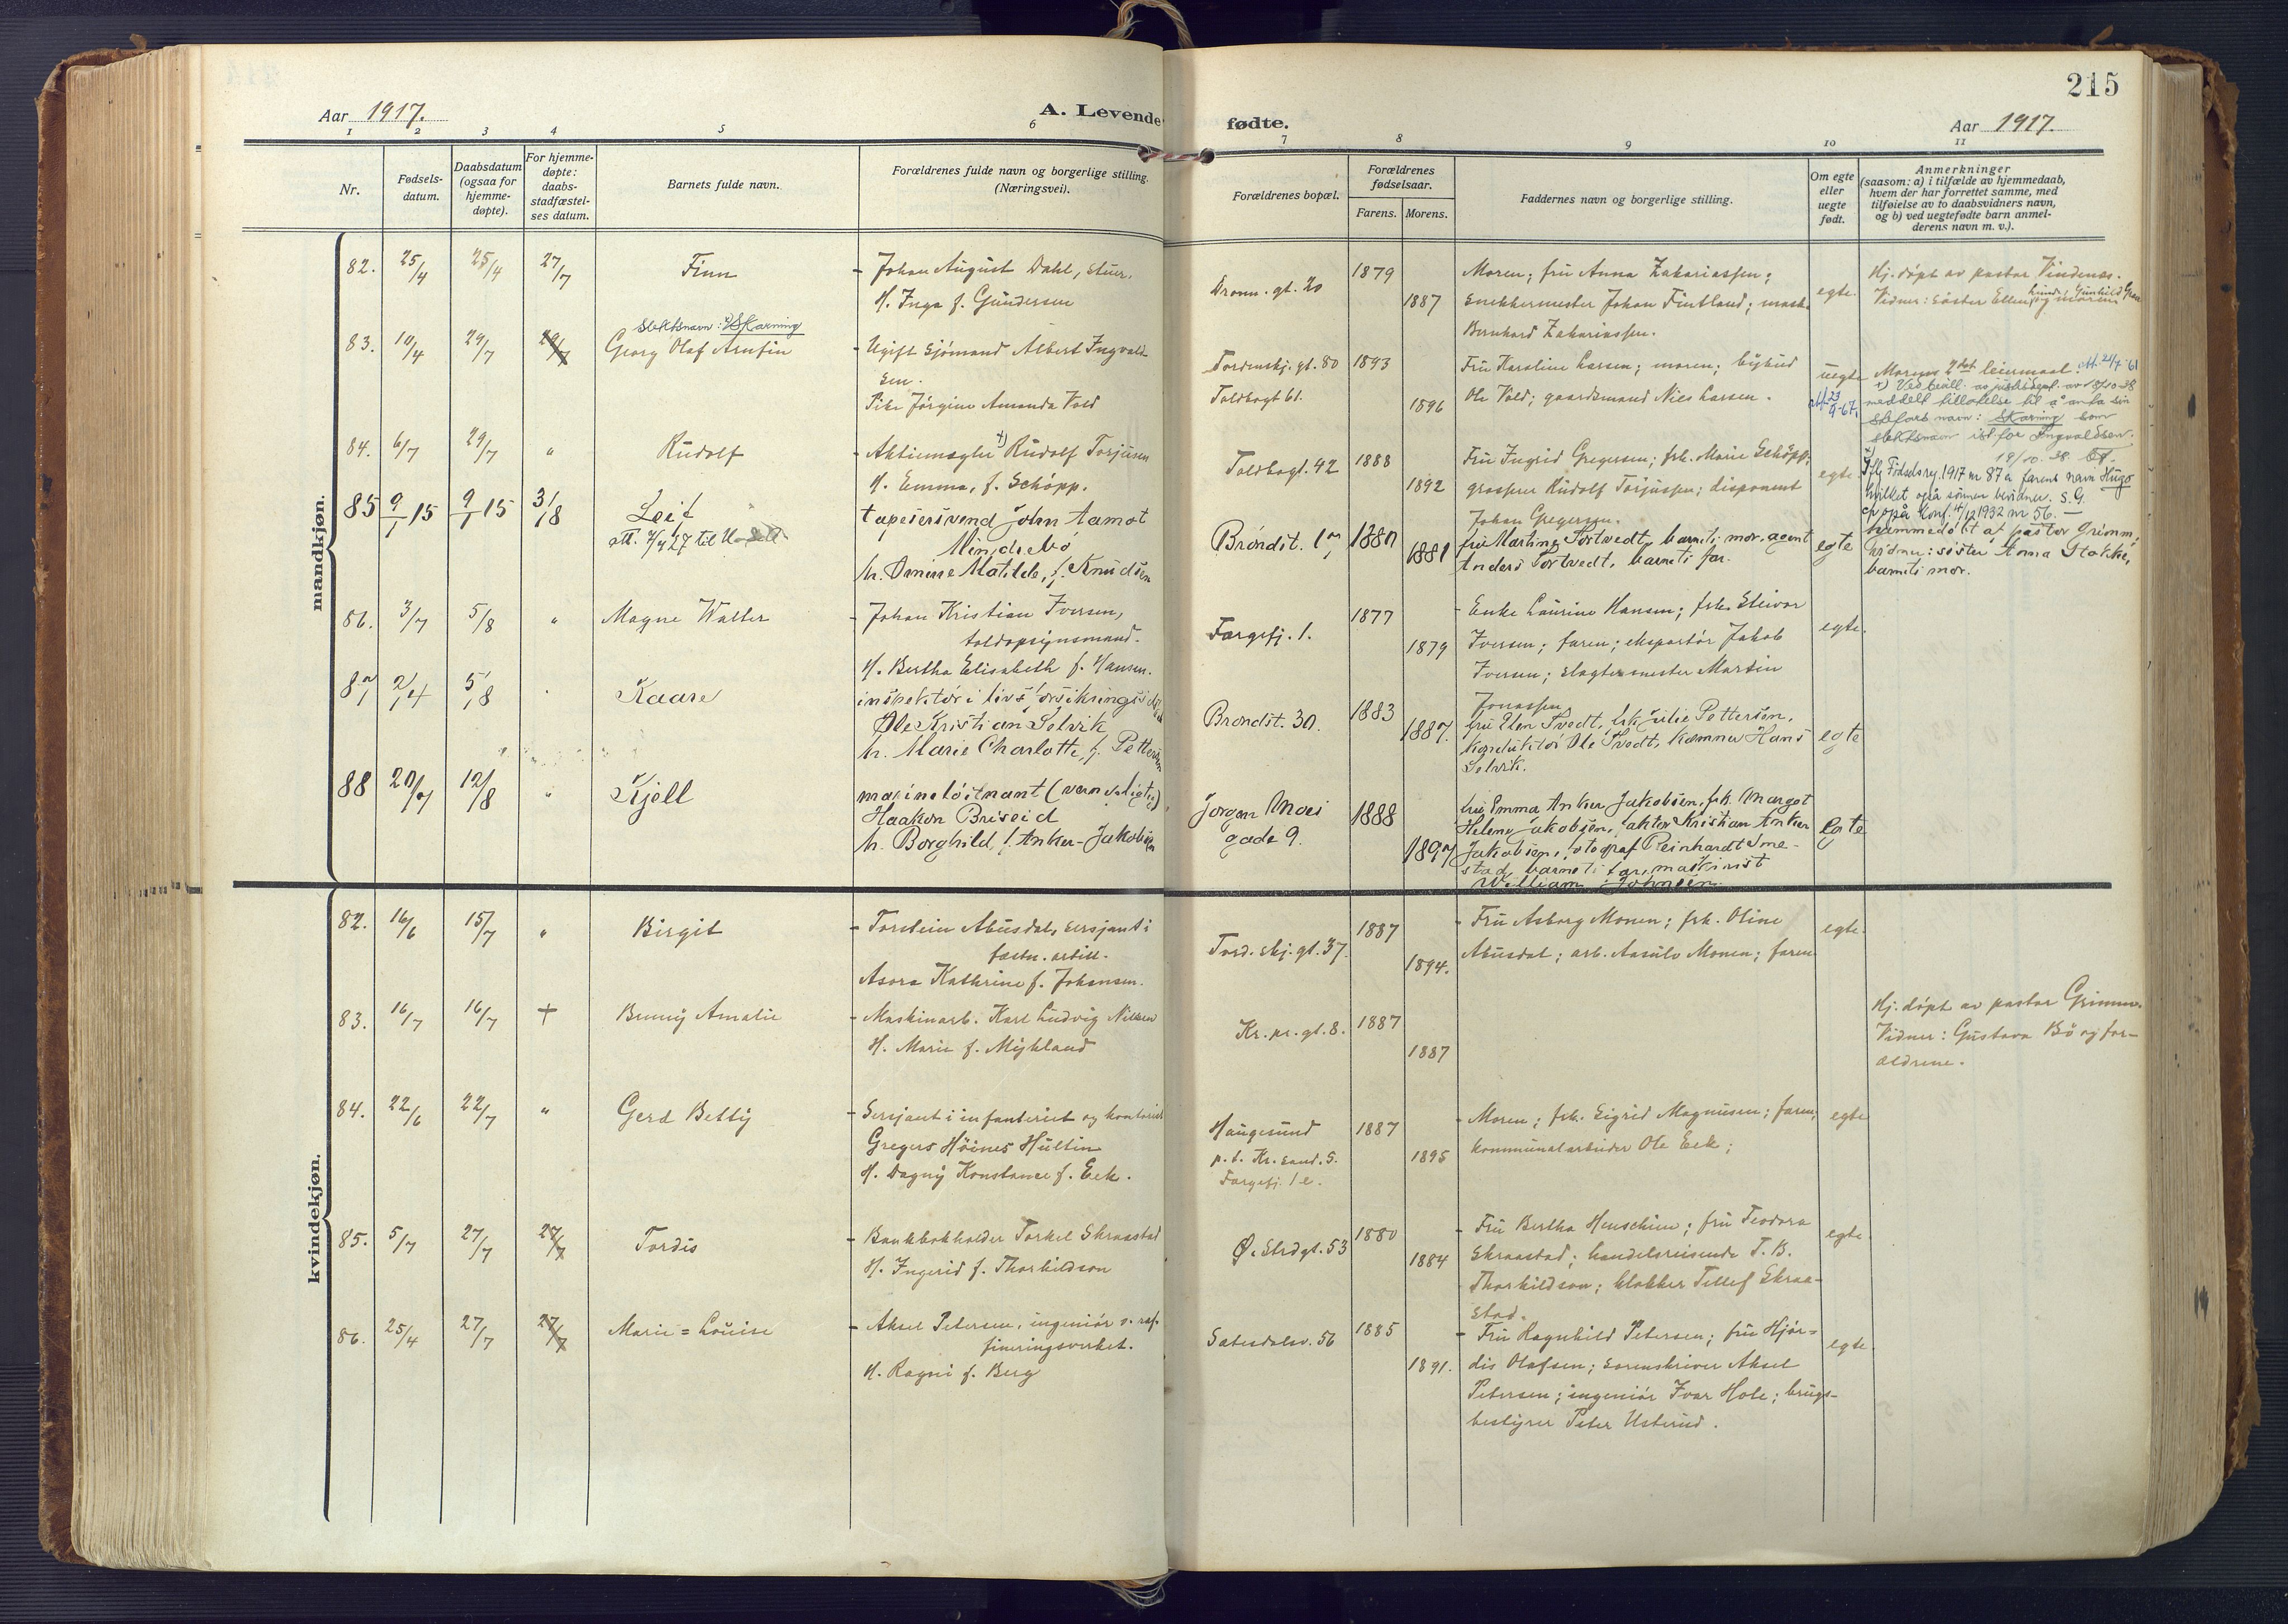 215
Aar 1917.
A. Levende
fødte.
Aar 1917.
1 2 3 4 5 6 7 8 9 10 11
Nr.
Fødsels-
datum.
Daabsdatum
(ogsaa for
hjemme-
døpte).
For hjemme-
døpte:
daabs-
stadfæstel-
ses datum.
Barnets fulde navn.
Forældrenes fulde navn og borgerlige stilling.
(Næringsvei).
Forældrenes bopæl.
Forældrenes
fødselsaar.
Farens. Morens.
Faddernes navn og borgerlige stilling.
Om egte
eller
uegte
født.
Anmerkninger
(saasom: a) i tilfælde av hjemmedaab,
hvem der har forrettet samme, med
tilføielse av to daabsvidners navn,
og b) ved uegtefødte barn anmel-
derens navn m. v.).
mandkjøn.
82. 25/4 25/4 27/7 Finn
- Johan August Dahl, stuer.
H. Inga f. Gundersen
Dronn. gt. 20
1879
1887
Moren; fru Anna Zakariassen;
Snekkermester Johan Fintland;
Bernhard Zakariassen.
egte.
Hj. døpt av pastor Vindenæs.
Vidner: Søster Ellen
83. 10/4 29/7 29/7
Slektsnavn: Skarning
Georg Olaf Arnfin
- Ugift Sjömand Albert Ingvald-
sen.
Pike Jörgine Amanda Vold
Tordenskj. gt. 80
Toldbogt 61.
1893
1896
Fru Karoline Larsen; moren; bybud
Ole Vold; gaardsmand Niels Larsen.
uegte
Morens 2det leiermaal.
att. 21/7 61
x) Ved bevill. av justisdept. av 10/10 38
meddelt tillatelse til å anta sin
stefars navn: Skarning som
slektsnavn ist. for Ingvaldsen.
84. 6/7 29/7 " Rudolf
- Aktiemægler x) Rudolf Torjusen
H. Emma, f. Schöpp.
Toldbogt. 42
1888
1892
Fru Ingrid Gregersen; frk. Marie Schöpp;
grosserer Rudolf Torjussen; disponent
Johan Gregersen.
egte.
Iflg Fødselsreg. 1917 nr 87 a farens navn Hugo
hvilket også sønnen bevidner. S. G.
cfr også Konf. 1932 nr 56. -
85 9/1 15 9/1 15 3/8 Leif
tapetsersvend John Aamot
Mindebö
h. Omine Matilde, f. Knudsen
Bröndst. 17
1880
1881
fru Martine Tortvedt, barnets mor, agent
Anders Tortvedt, barnets far.
egte
hjemmedöbt af pastor Grimm,
Vidner: söster Anna Stokke,
barnets mor.
86. 3/7 5/8 " Magne Walter
- Johan Kristian Iversen,
toldopsynsmand.
H. Bertha Elisabeth f. Hansen.
Fargefj. 1.
1877
1879
- Enke Laurine Hansen; frk. Eleivor
Iversen; faren; ekspeditör Jakob
Iversen; slagtermester Martin
Jonassen
egte.
87 2/4 5/8 Kaare
inspektör i livsforsikringsselsk
Ole Kristian Selvik
h. Marie Charlotte, f. Pettersen
Bröndst. 30.
1883
1887.
fru Elen Tvedt, frk Julie Pettersen,
konduktör Ole Tvedt, kæmner Hans
Selvik.
egte
88 20/7 12/8 " Kjell
marinelöitnant (vernepligtig)
Haakon Briseid
h. Borghild, f. Anker-Jakobsen
Jörgen Moes
gade 9.
1888
1897
fru Emma Anker Jakobsen, frk. Margot
Helene Jakobsen, faktor Kristian Anker
Jakobsen, fotograf Reinhardt Sme-
stad, barnets far, maskinist
William Johnsen.
egte
kvindekjøn.
82. 16/6 15/7 " Birgit
- Torstein Abusdal, sersjant i
fæstn. artill.
Asora Kathrine f. Johansen.
Tord. skj. gt. 37.
1887
1894.
- Fru Asborg Monen; frk. Oline
Abusdal; arb. Aasulv Monen; faren
egte.
83. 16/7 16/7 + Bunny Amalie
- Maskinarb. Karl Ludvig Nilsen
H. Marie f. Mykland
Kr. pr. gt. 8.
1887
1887
Hj. døpt av pastor Grimm.
Vidner: Gustava Bö og for-
ældrene.
84. 22/6 22/7 " Gerd Betty
- Sersjant i infanteriet og kontorist
Gregers Höines Hultin
H. Dagny Konstance f. Eek.
Haugesund
p. t. Kr. sand. S.
Fargefj. 1 e.
1887
1895
- Moren; frk. Sigrid Magnusen; faren;
kommunalarbeider Ole Eek;
egte
85. 5/7 27/7 27/7 Tordis
- Bankbokholder Torkel Skraastad
H. Ingerid f. Thorkildson
Ø. Strdgt. 53
1880
1884
- Fru Bertha Henschien; fru Teodora
Skraastad; handelsreisende T. B.
Thorkildson; klokker Tellef Skraa-
stad.
egte
86. 25/4 27/7 27/7 Marie = Louise
- Aksel Petersen, ingeniör v. raf-
fineringsverket.
H. Ragni f. Berg
Sætesdalsv. 56
1885
1891.
- Fru Ragnhild Petersen; fru Hjör-
dis Olafsen; sorenskriver Aksel
Petersen; ingeniör Ivar Hole; brugs-
bestyrer Peter Usterud.
egte